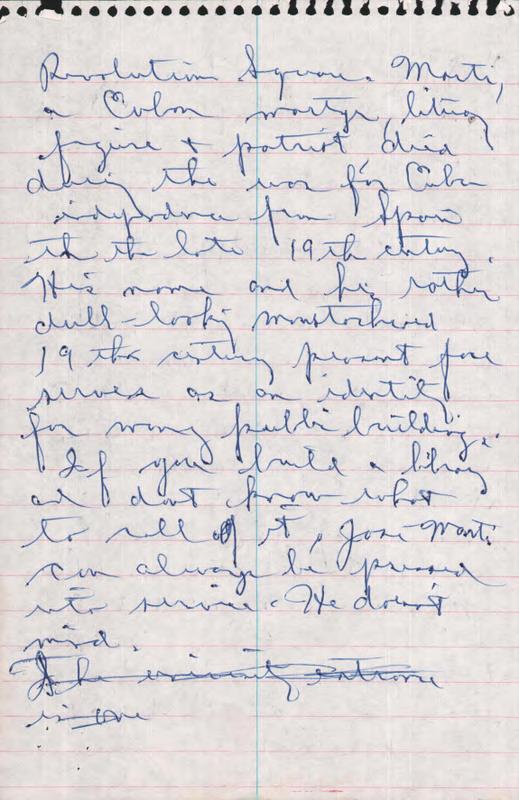 Revolution Square. Marti,
a Cuban martyr, literary
figure + patriot died
during the war for Cuban
independence from Spain
in the late 19th century.
His name and his rather
dull-looking moustachioed
19th century peasant face
serves as an identity
for many public buildings.
If you build a library
and don't know what
to call it, Jose Marti
can always be pressed
into service. He doesn't
mind.
The university entrance
is one